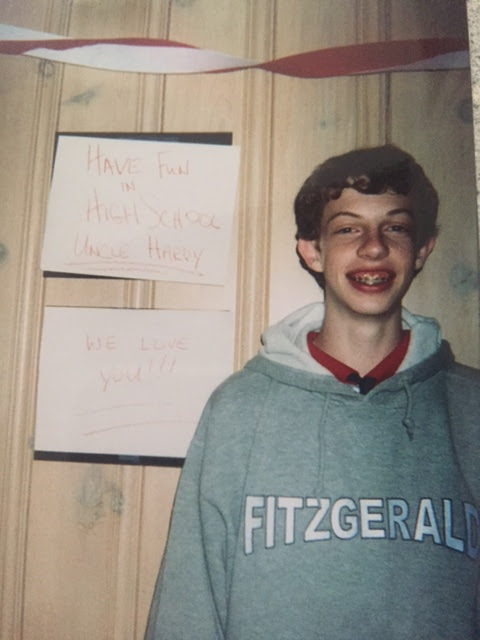 HAVE FUN
IN
HIGH SCHOOL
UNCLE HARDY
WE LOVE
YOU!!!
FITZGERALD